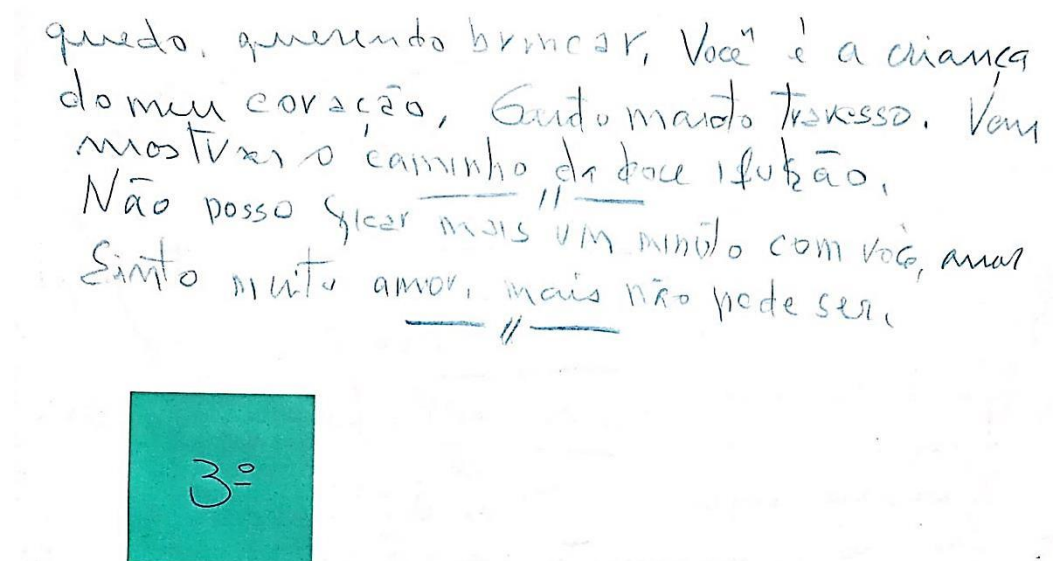 quedo, querendo brincar, Você é a criança
do meu coração, Garoto maroto travesso. Vem
mostrar o caminho da doce
Não posso ficar mais um minuto com você, amor
Sinto muito amor, mais não pode ser,
3º